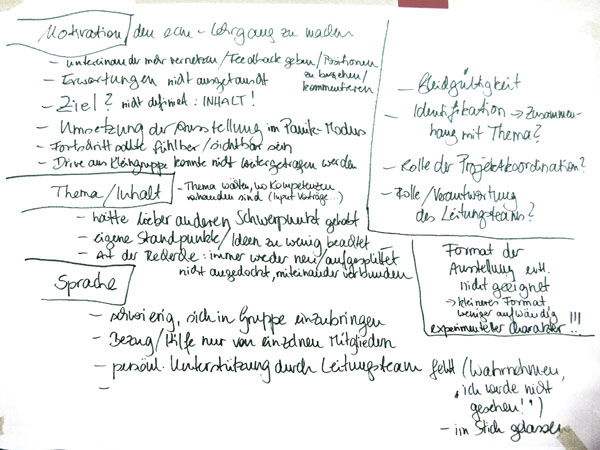 Motivation / den ecm-Lehrgang zu machen
- untereinander mehr vernetzen / Feedback geben / Positionen
zu beziehen /
kommentieren
- Erwartungen nicht ausgetauscht
- Ziel? nicht definiert: INHALT!
- Umsetzung der Ausstellung im Panik-Modus
- Fortschritt sollte fühlbar / sichtbar sein
- Drive aus Kleingruppe konnte nicht weitergetragen werden
Thema / Inhalt
- Thema wählen, wo Kompetenzen
vorhanden sind (Input Vorträge...)
- hätte lieber anderen Schwerpunkt gehabt
- eigene Standpunkte / Ideen zu wenig beachtet
- Art der Rederole: immer wieder neu / aufgesplittet
nicht ausgedacht, miteinander verbunden
Sprache
- schwierig, sich in Gruppe einzubringen
- Bezug / Hilfe nur von einzelnen Mitgliedern
- persönl. Unterstützung durch Leitungsteam fehlt (Wahrnehmen,
"ich werde nicht
gesehen!")
- im Stich gelassen
-
- Gleichgültigkeit
- Identifikation → Zusammen-
hang mit Thema?
- Rolle der Projektkoordination?
- Rolle / Verantwortung
des Leitungsteams?
Format der
Ausstellung evtl.
nicht geeignet
→ kleineres Format
weniger aufwändig
experimenteller Charakter..!!!